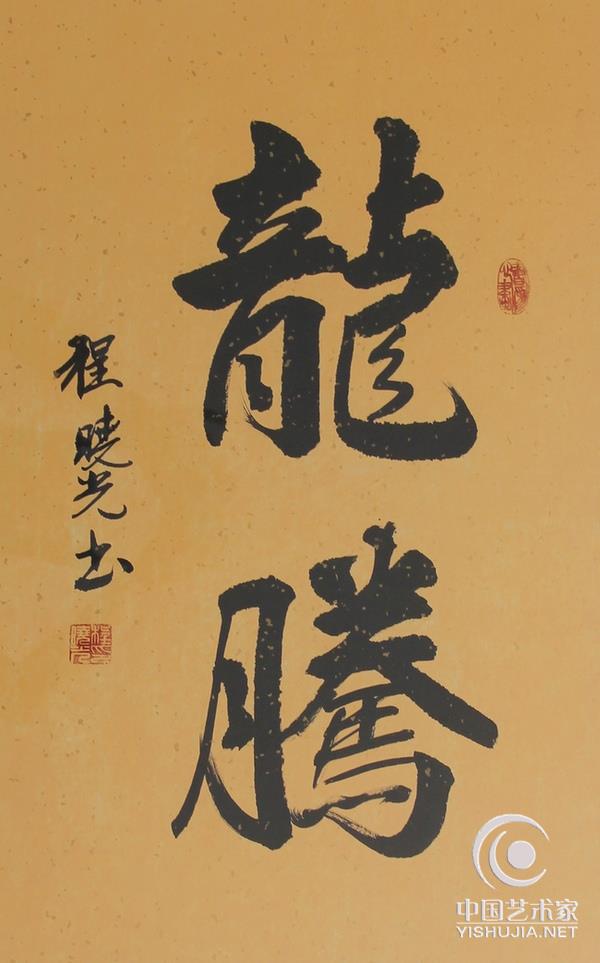 龍騰
程曉光书
中国艺术家
YISHUJIA.NET